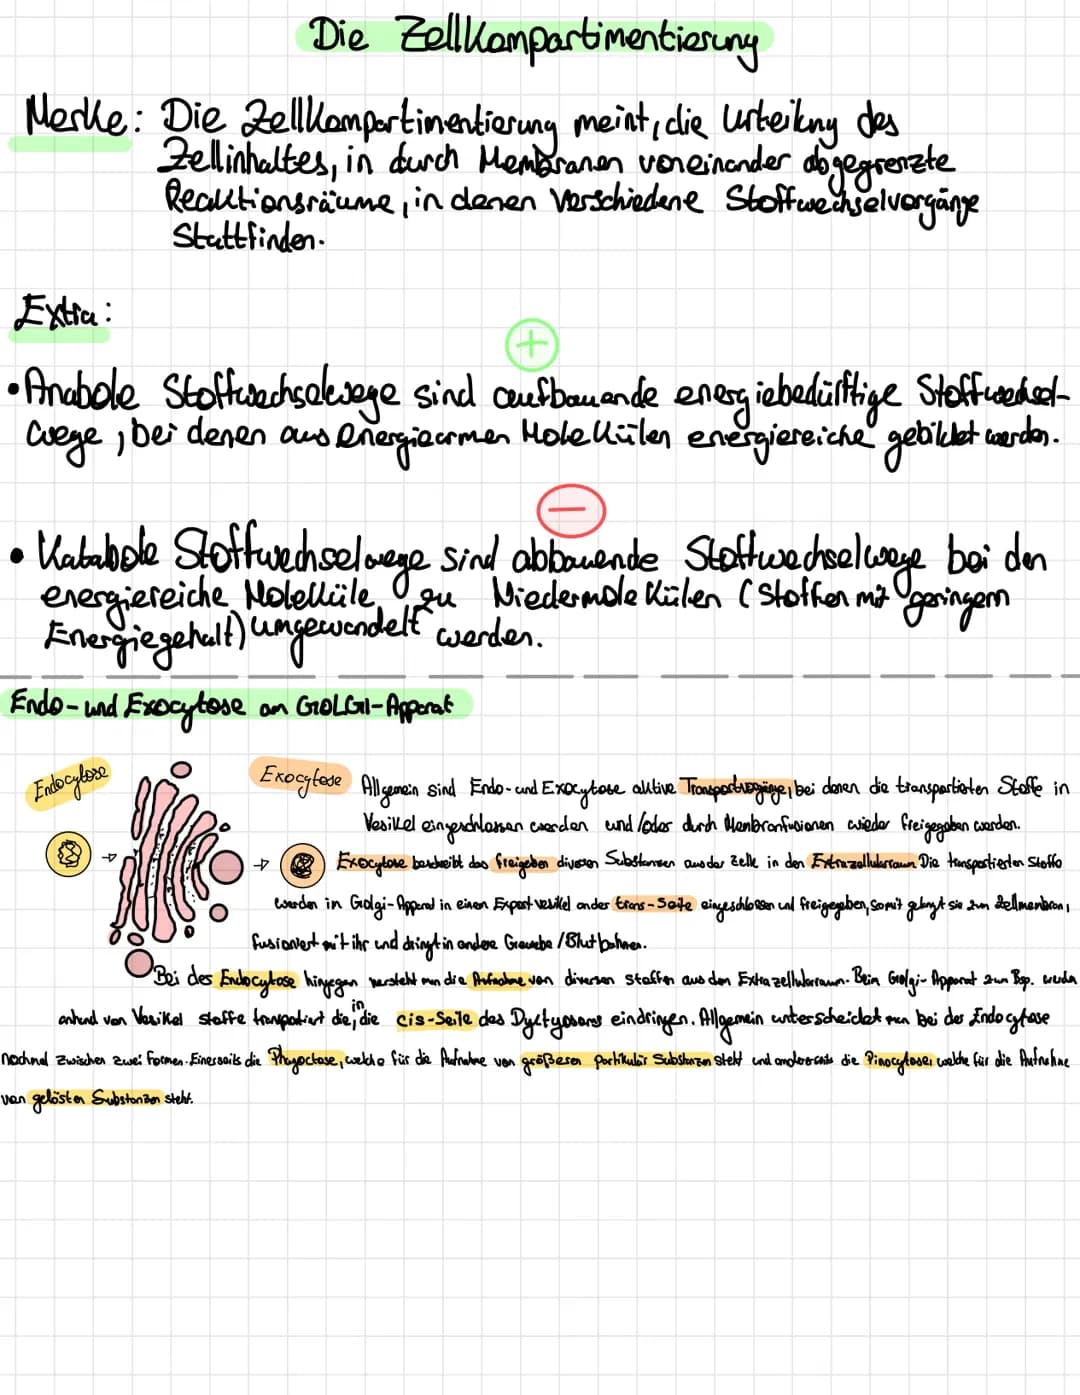 Die Zellkompartimentierung
Merke: Die Zellkompartimentierung meint, die Urteilung des
Zellinhaltes, in durch Membranen voneinander abgegrenzte
Reaktionsräume, in denen verschiedene Stoffwechselvorgänge
Stattfinden.
Extra:
+
• Anabole Stoffwechselwege sind aufbauende energiebedürftige Stoffwechsel-
wege, bei denen aus energiearmen Molekülen energiereiche gebildet werden.
−
• Katabole Stoffwechselwege sind abbauende Stoffwechselwege bei den
energiereiche Moleküle zu Niedermolekülen (Stoffen mit geringem
Energiegehalt) umgewandelt werden.
Endo- und Exocytose am GOLGI-Apparat
Endocytose
Exocytose
Allgemein sind Endo- und Exocytose aktive Transportvorgänge, bei denen die transportierten Stoffe in
Vesikel eingeschlossen werden und/oder durch Membranfusionen wieder freigegeben werden.
Exocytose beschreibt das freigeben diversen Substanzen aus der Zelle in den Extrazellularraum. Die transportierten Stoffe
werden im Golgi-Apparat in einen Export vesikel an der trans-Seite eingeschlossen und freigegeben, somit gelangt sie zum Zellmembran,
fusioniert mit ihr und dringt in andere Gewebe/Blutbahnen.
Bei des Endocytose hingegen versteht man die Aufnahme von diversen stoffen aus dem Extrazellularraum. Beim Golgi-Apparat zum Bsp. werden
anhand von Vesikel stoffe transportiert die, in die cis-Seite des Dyctyosoms eindringen. Allgemein unterscheidet man bei der Endocytose
nochmal zwischen zwei Formen. Einerseits die Phagoctose, welche für die Aufnahme von größeren partikulär Substanzen steht und andererseits die Pinocytose, welche für die Aufnahme
von gelösten Substanzen steht.